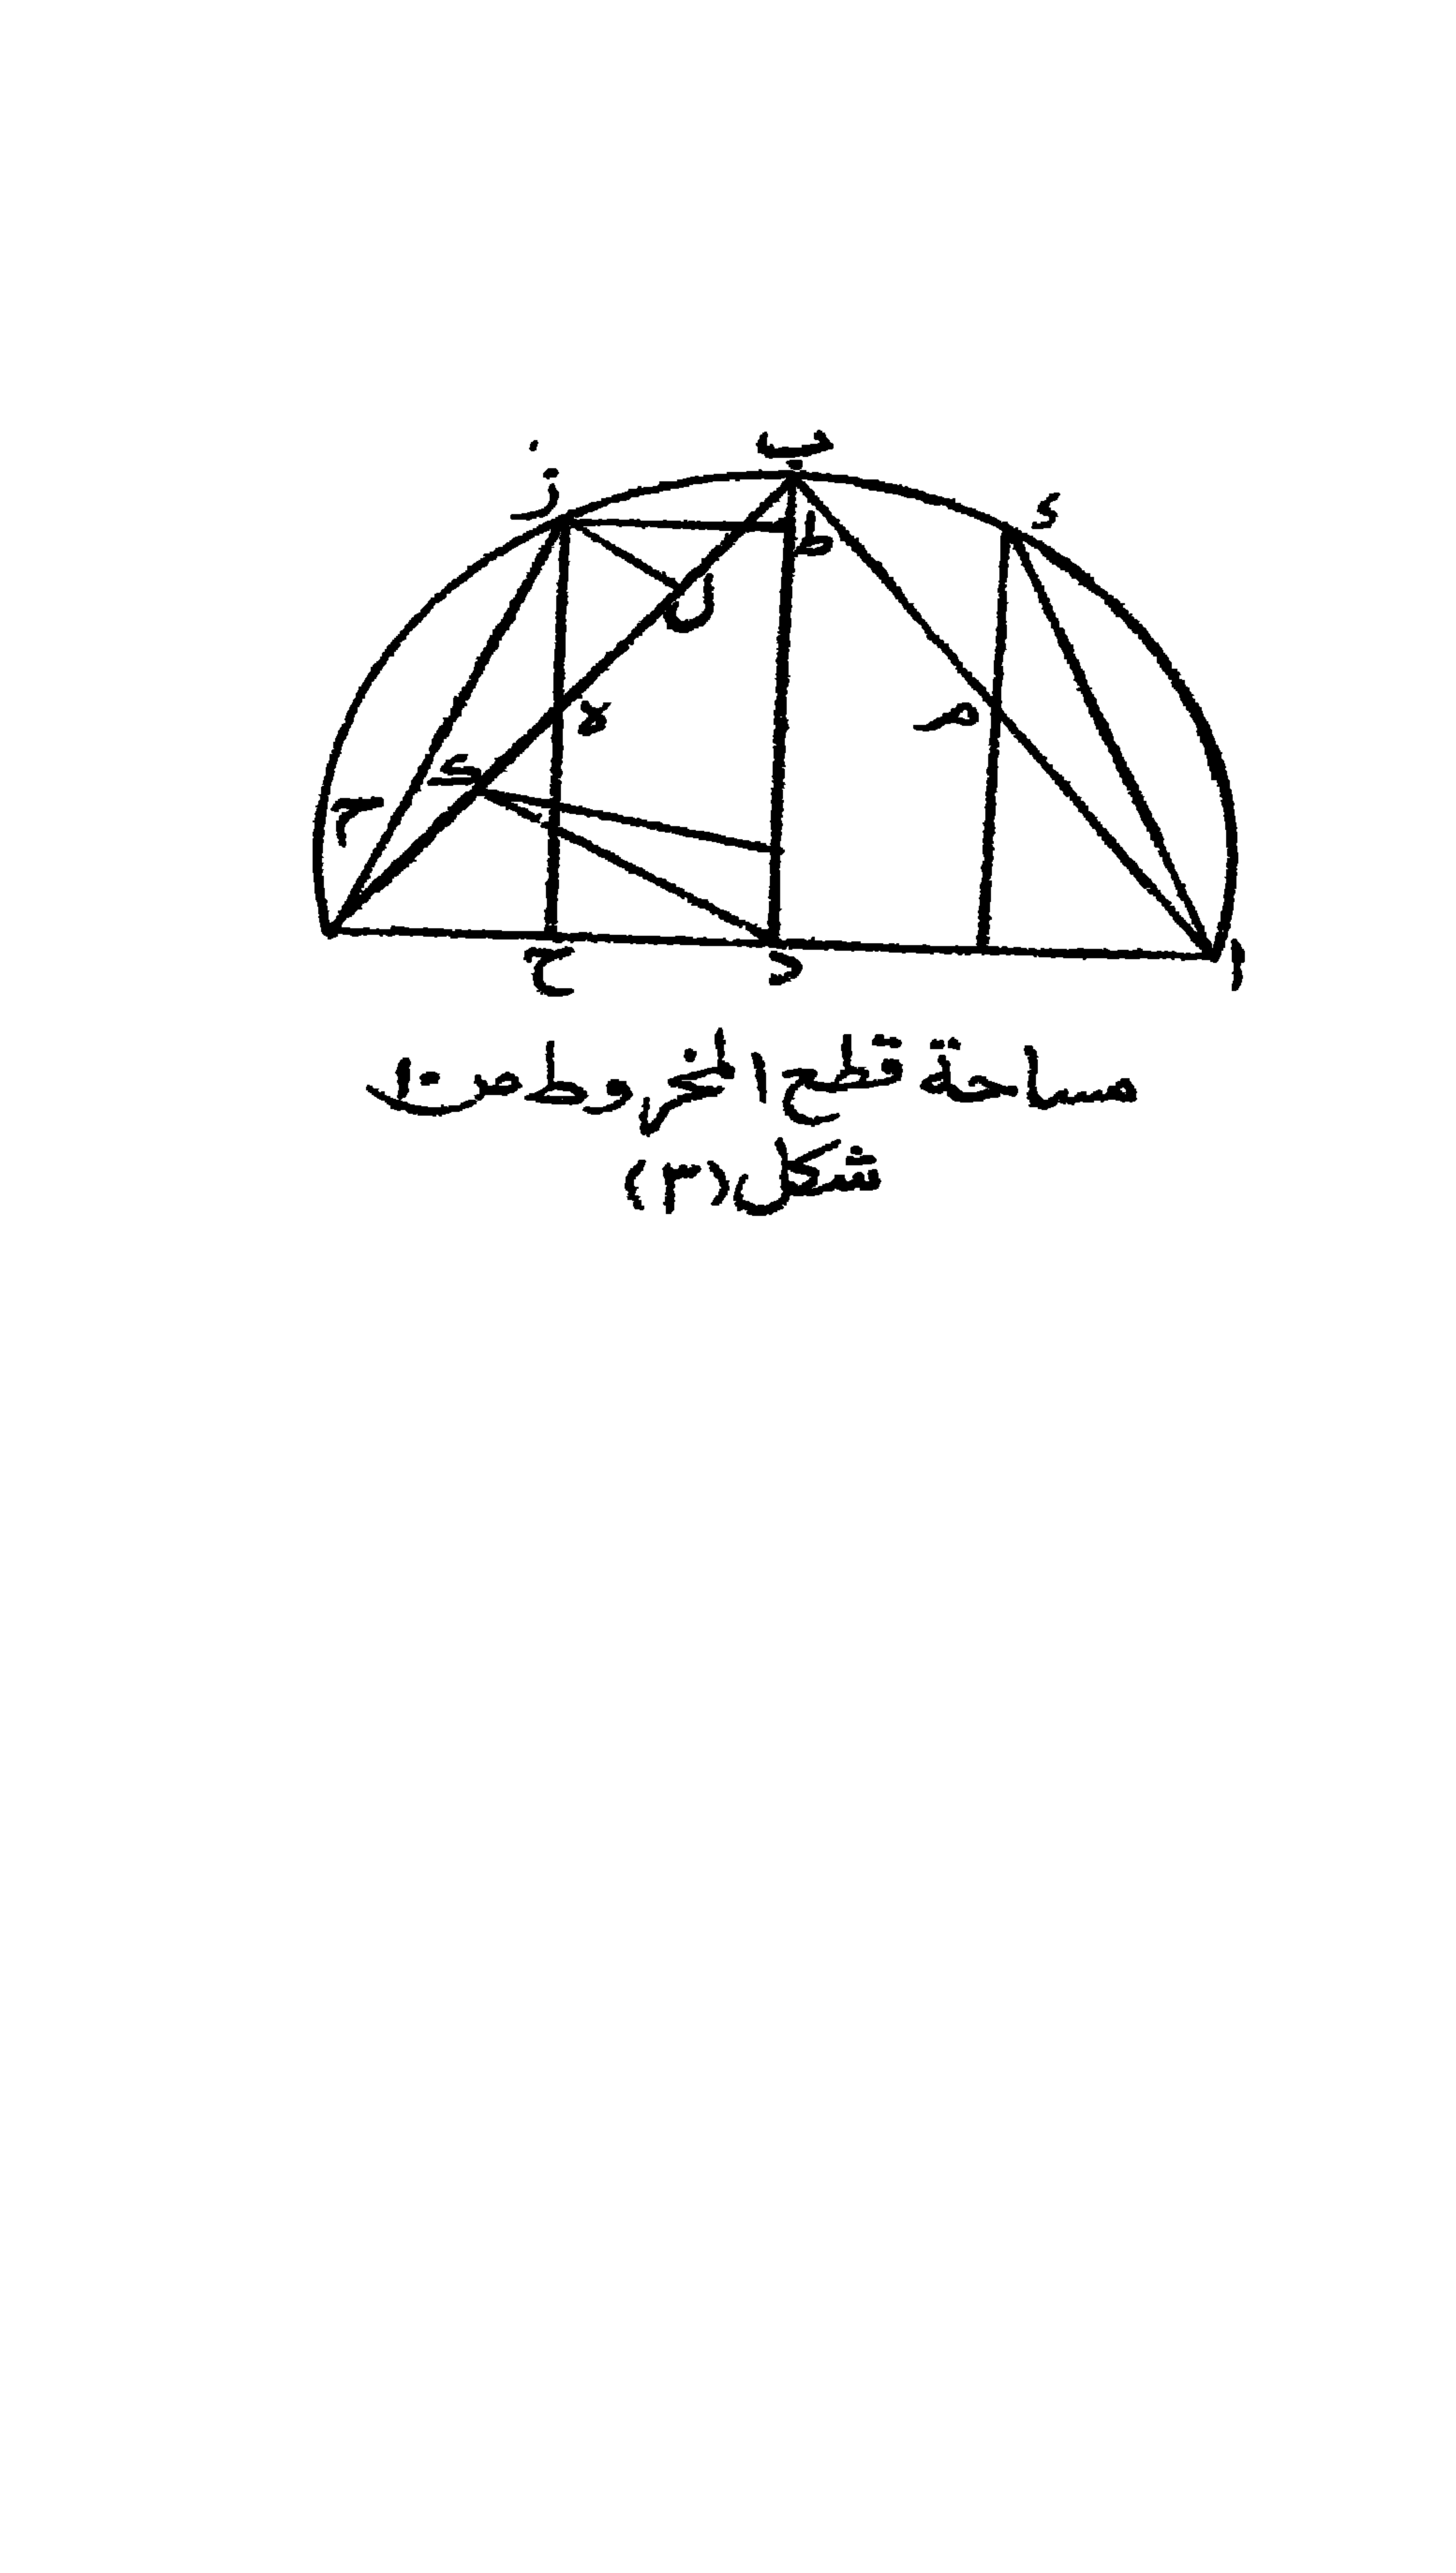 ب
ز
ء
ط
ل
ه
م
ک
ح
ح
د
ا
مساحة قطع المخروط ص ١٠
شكل (٣)